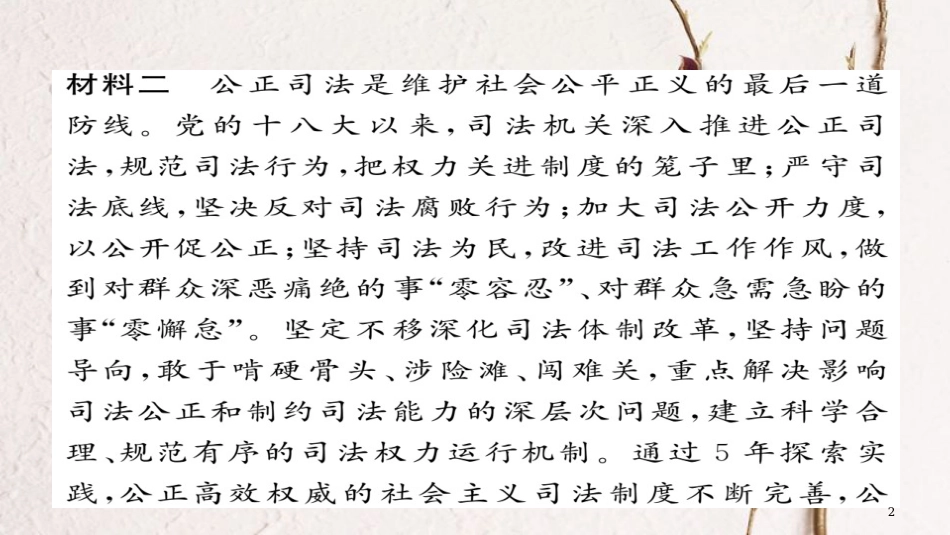 材料二　公正司法是维护社会公平正义的最后一道
防线。党的十八大以来,司法机关深入推进公正司
法,规范司法行为,把权力关进制度的笼子里;严守司
法底线,坚决反对司法腐败行为;加大司法公开力度,
以公开促公正;坚持司法为民,改进司法工作作风,做
到对群众深恶痛绝的事“零容忍”、对群众急需急盼的
事“零懈怠”。坚定不移深化司法体制改革,坚持问题
导向,敢于啃硬骨头、涉险滩、闯难关,重点解决影响
司法公正和制约司法能力的深层次问题,建立科学合
理、规范有序的司法权力运行机制。通过 5 年探索实
践,公正高效权威的社会主义司法制度不断完善,公
2